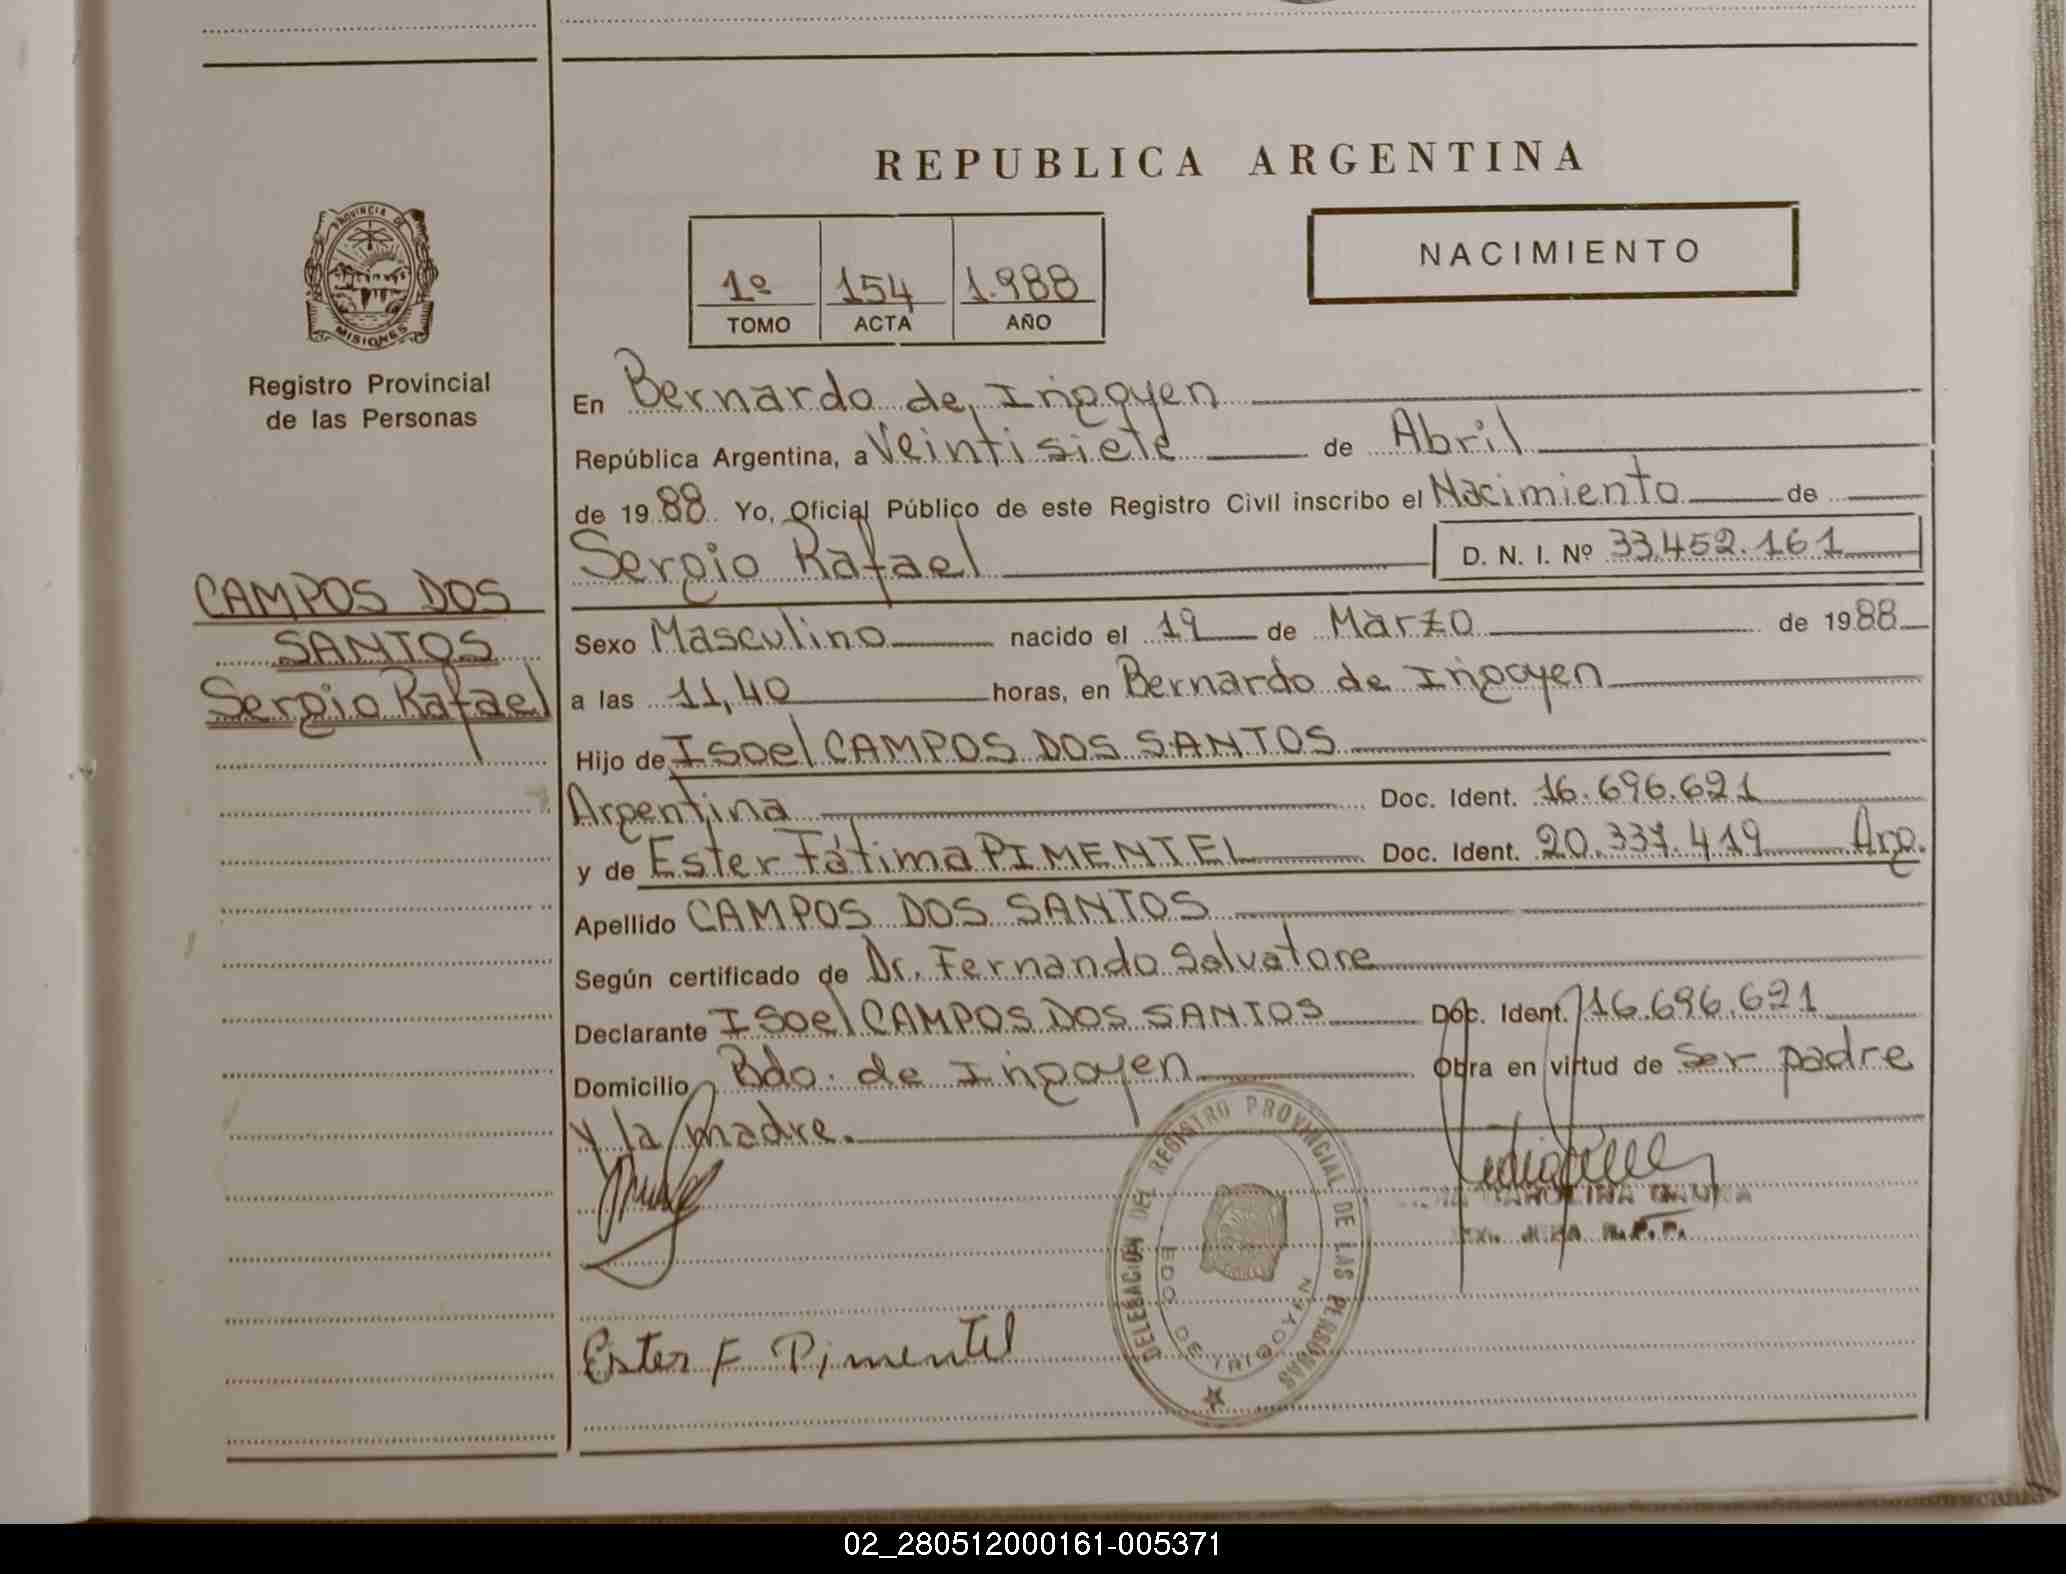 REPUBLICA ARGENTINA
NACIMIENTO
1º 154 1.988
TOMO ACTA AÑO
PROVINCIA DE
MISIONES
Registro Provincial
de las Personas
CAMPOS DOS
SANTOS
Sergio Rafael
En Bernardo de Irigoyen
República Argentina, a Veintisiete de Abril
de 1988. Yo, Oficial Público de este Registro Civil inscribo el Nacimiento de
Sergio Rafael D. N. I. Nº 33.452.161
Sexo Masculino nacido el 19 de Marzo de 1988
a las 11,40 horas, en Bernardo de Irigoyen
Hijo de Isoel CAMPOS DOS SANTOS
Argentina Doc. Ident. 16.696.621
y de Ester Fátima PIMENTEL Doc. Ident. 20.337.419 Arg.
Apellido CAMPOS DOS SANTOS
Según certificado de Dr. Fernando Salvatore
Declarante Isoel CAMPOS DOS SANTOS Doc. Ident. 16.696.621
Domicilio Bdo. de Irigoyen Obra en virtud de Ser padre
y la madre.
DELEGACIÓN DEL REGISTRO PROVINCIAL DE LAS PERSONAS
BDO DE IRIGOYEN
Ester F Pimentel
02_280512000161-005371